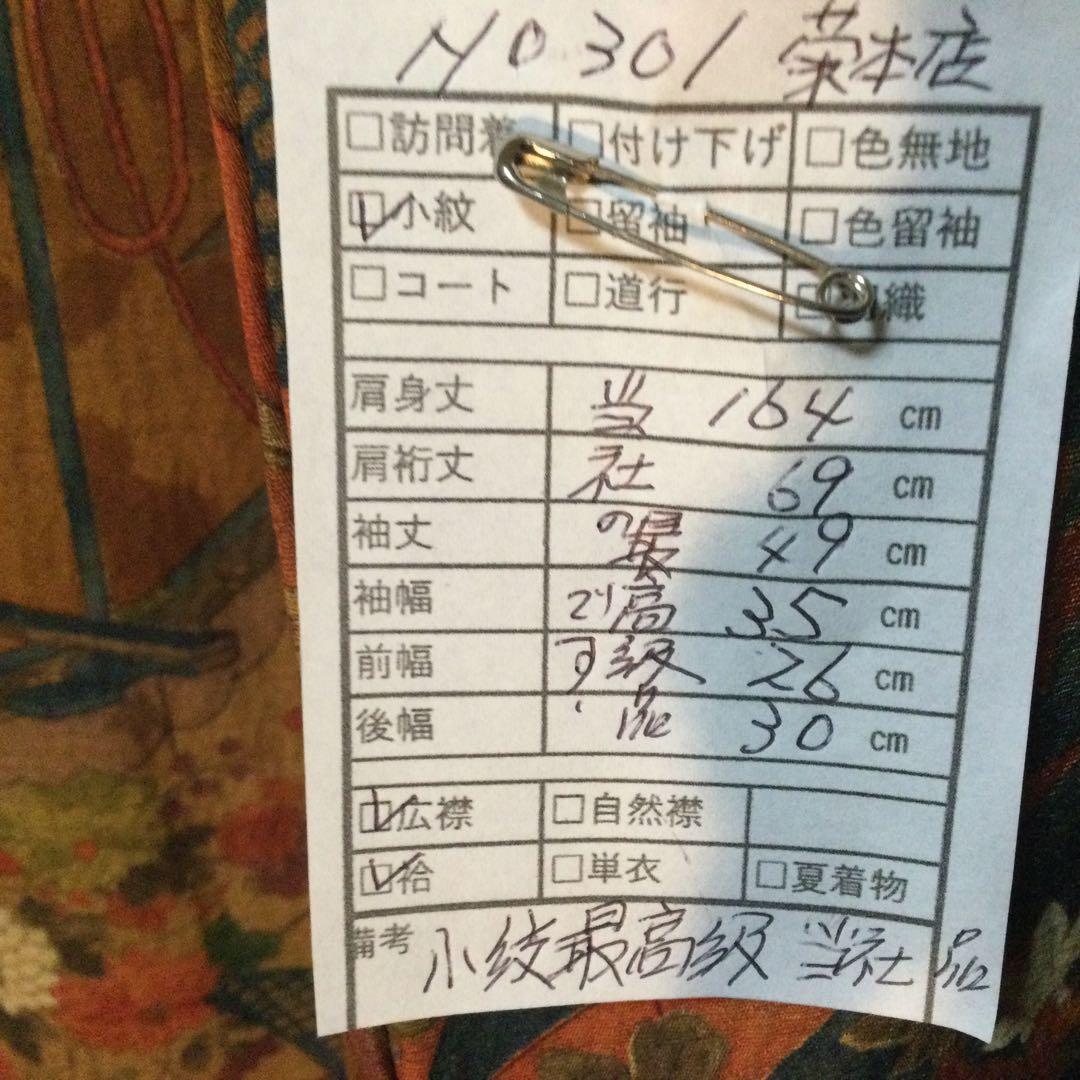 NO 301 栄本店
□訪問着 □付け下げ □色無地
☑小紋 □留袖 □色留袖
□コート □道行 □羽織
肩身丈 164 cm
肩裄丈 69 cm
袖丈 49 cm
袖幅 35 cm
前幅 26 cm
後幅 30 cm
当社の最高級品
です、
☑広襟 □自然襟
☑袷 □単衣 □夏着物
備考 小紋最高級 当社品